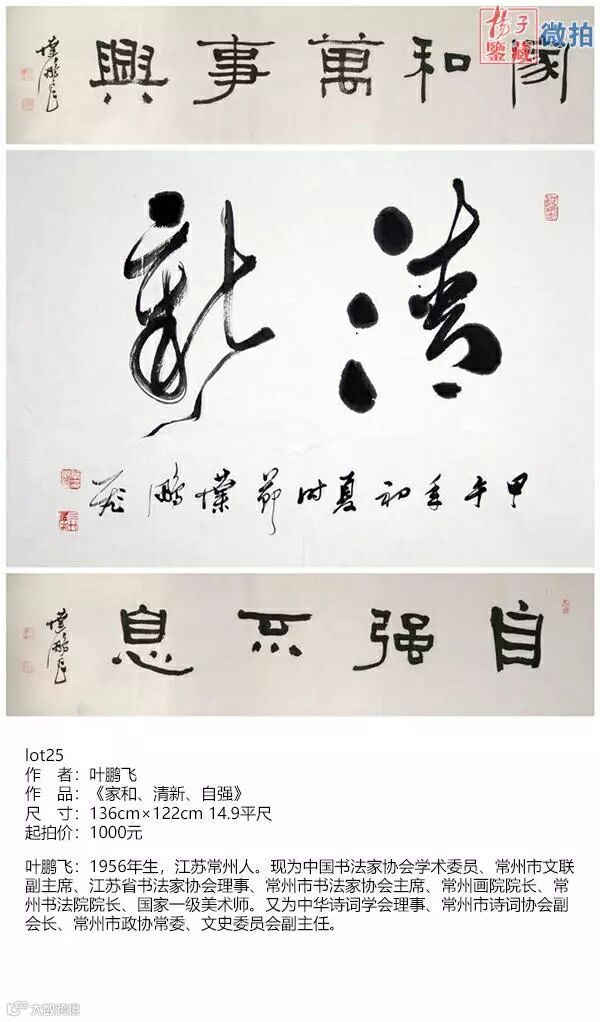 揚子鑒藏 微拍
家和萬事興
葉鵬飛
清新
甲午年初夏时節葉鵬飛
自强不息
葉鵬飛
lot25
作 者：叶鹏飞
作 品：《家和、清新、自强》
尺 寸：136cm×122cm 14.9平尺
起拍价：1000元
叶鹏飞：1956年生，江苏常州人。现为中国书法家协会学术委员、常州市文联
副主席、江苏省书法家协会理事、常州市书法家协会主席、常州画院院长、常
州书法院院长、国家一级美术师。又为中华诗词学会理事、常州市诗词协会副
会长、常州市政协常委、文史委员会副主任。
大数跨境